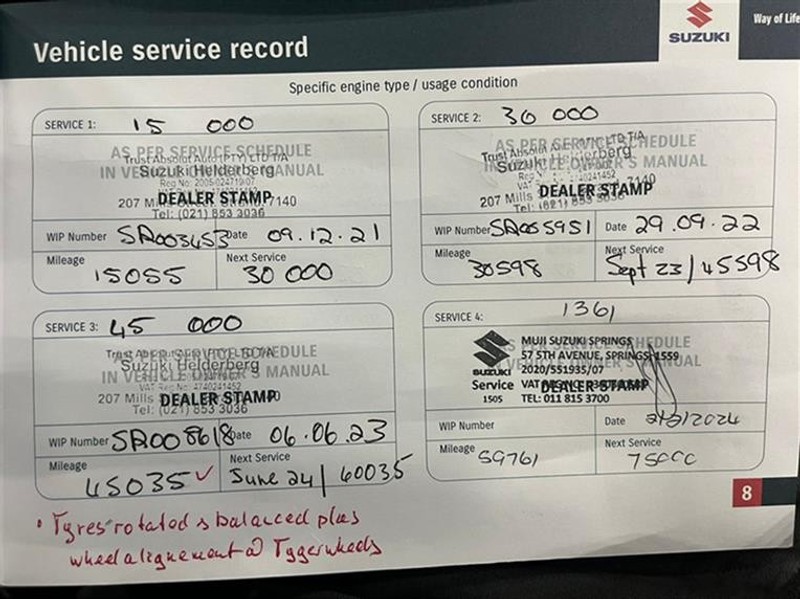 Vehicle service record
SUZUKI
Way of Life
Specific engine type / usage condition
SERVICE 1: 15 000
AS PER SERVICE SCHEDULE
Trust Absolut Auto (PTY) LTD T/A
IN VEHICLE OWNER'S MANUAL
Suzuki Helderberg
DEALER STAMP
207 Mills 7140
Tel: (021) 853 3036
WIP Number SR003453 Date 09.12.21
Mileage 15055
Next Service 30 000
SERVICE 2: 30 000
AS PER SERVICE SCHEDULE
Trust Absolut LTD T/A
IN VEHICLE OWNER'S MANUAL
Suzuki Helderberg
DEALER STAMP
207 Mills 7140
Tel: (021) 853 3036
WIP Number SR005951 Date 29.09.22
Mileage 30598
Next Service Sept 23/45598
SERVICE 3: 45 000
AS PER SERVICE SCHEDULE
Suzuki Helderberg
IN VEHICLE OWNER'S MANUAL
VAT Reg No: 4740241452
DEALER STAMP
207 Mills 7140
Tel: (021) 853 3036
WIP Number SR008618 Date 06.06.23
Mileage 45035
Next Service June 24/60035
SERVICE 4: 1361
AS PER SERVICE SCHEDULE
IN VEHICLE OWNER'S MANUAL
DEALER STAMP
SUZUKI
Service
1505
MUJI SUZUKI SPRINGS
57 5TH AVENUE, SPRINGS, 1559
2020/551935/07
TEL: 011 815 3700
WIP Number
Date 2/2/2024
Mileage 59761
Next Service 75000
8
• Tyres rotated & balanced plus
wheel alignement @ Tygerwheels